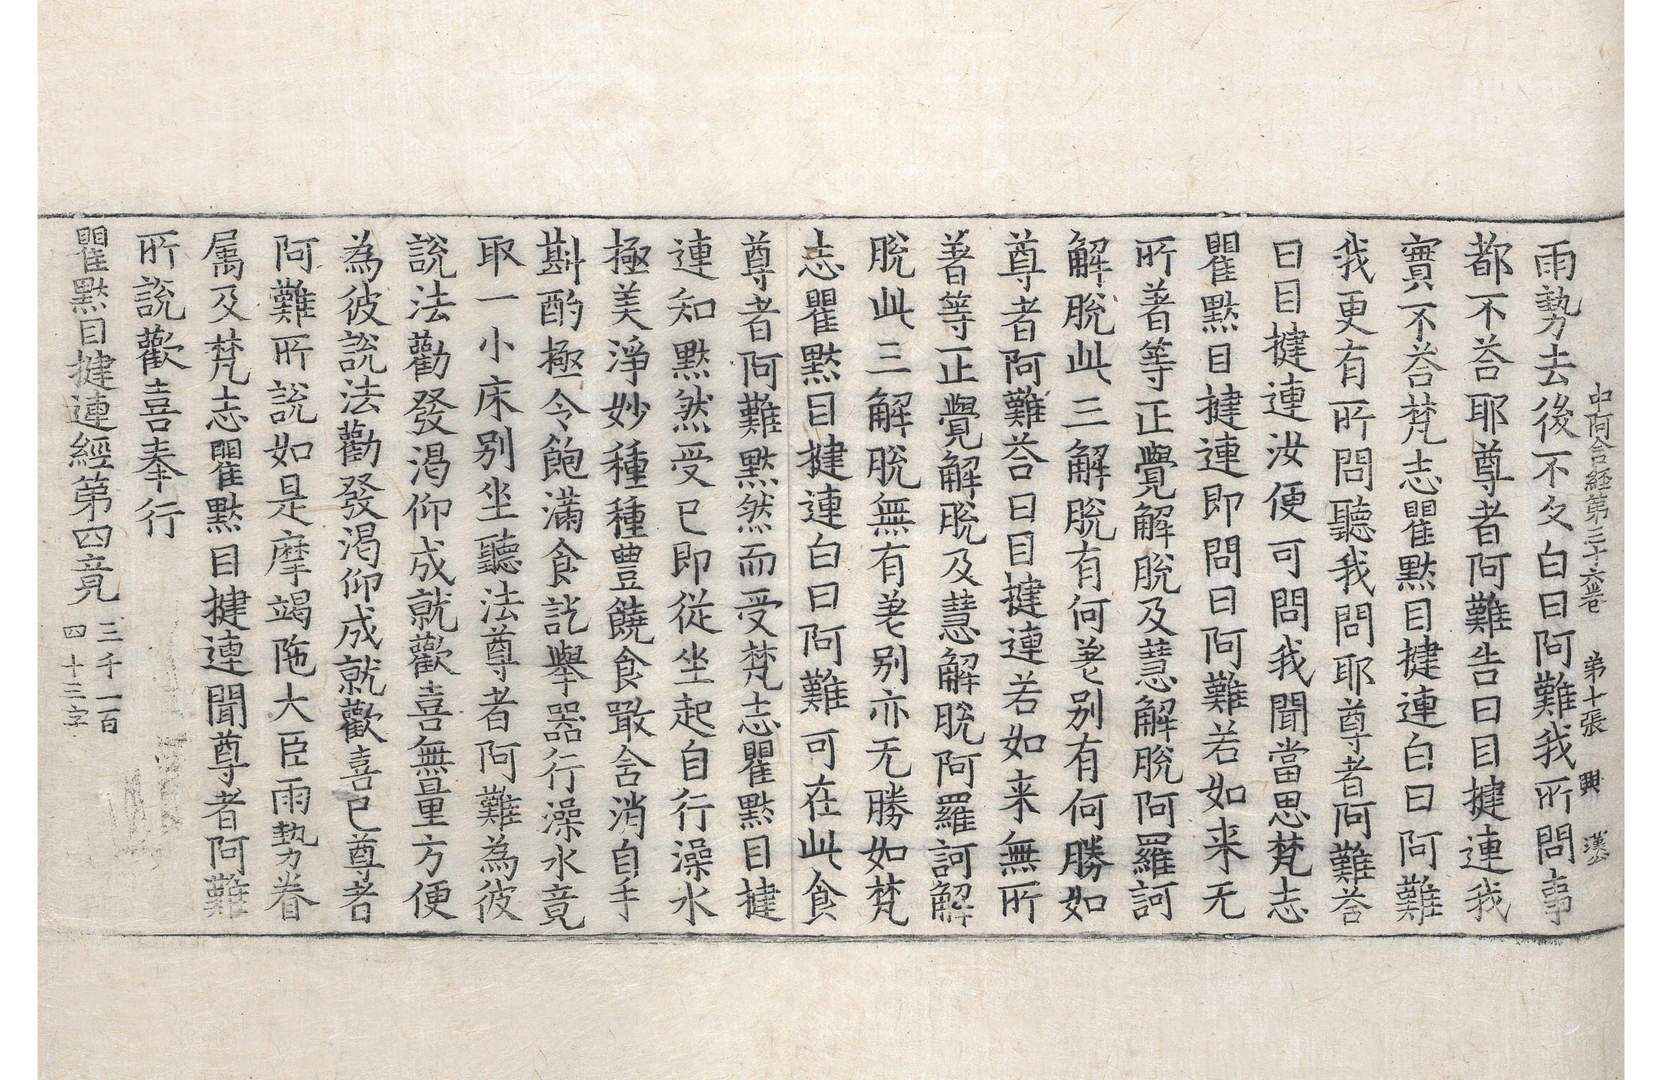 中阿含経第三十六卷　第十張　興　漢
雨勢去後不久白曰阿難我所問事
都不荅耶尊者阿難告曰目揵連我
實不荅梵志瞿黙目揵連白曰阿難
我更有所問聽我問耶尊者阿難荅
曰目揵連汝便可問我聞當思梵志
瞿黙目揵連即問曰阿難若如来无
所著等正覺解脫及慧解脫阿羅訶
解脫此三解脫有何差别有何勝如
尊者阿難荅曰目揵連若如来無所
著等正覺解脫及慧解脫阿羅訶解
脫此三解脫無有差别亦无勝如梵
志瞿黙目揵連白曰阿難可在此食
尊者阿難黙然而受梵志瞿黙目揵
連知黙然受已即從坐起自行澡水
極美淨妙種種豊饒食噉含消自手
斟酌極令飽滿食訖舉器行澡水竟
取一小床别坐聽法尊者阿難為彼
說法勸發渴仰成就歡喜無量方便
為彼說法勸發渴仰成就歡喜已尊者
阿難所說如是摩竭陁大臣雨勢眷
属及梵志瞿黙目揵連聞尊者阿難
所說歡喜奉行
瞿黙目揵連經第四竟
三千一百
四十三字